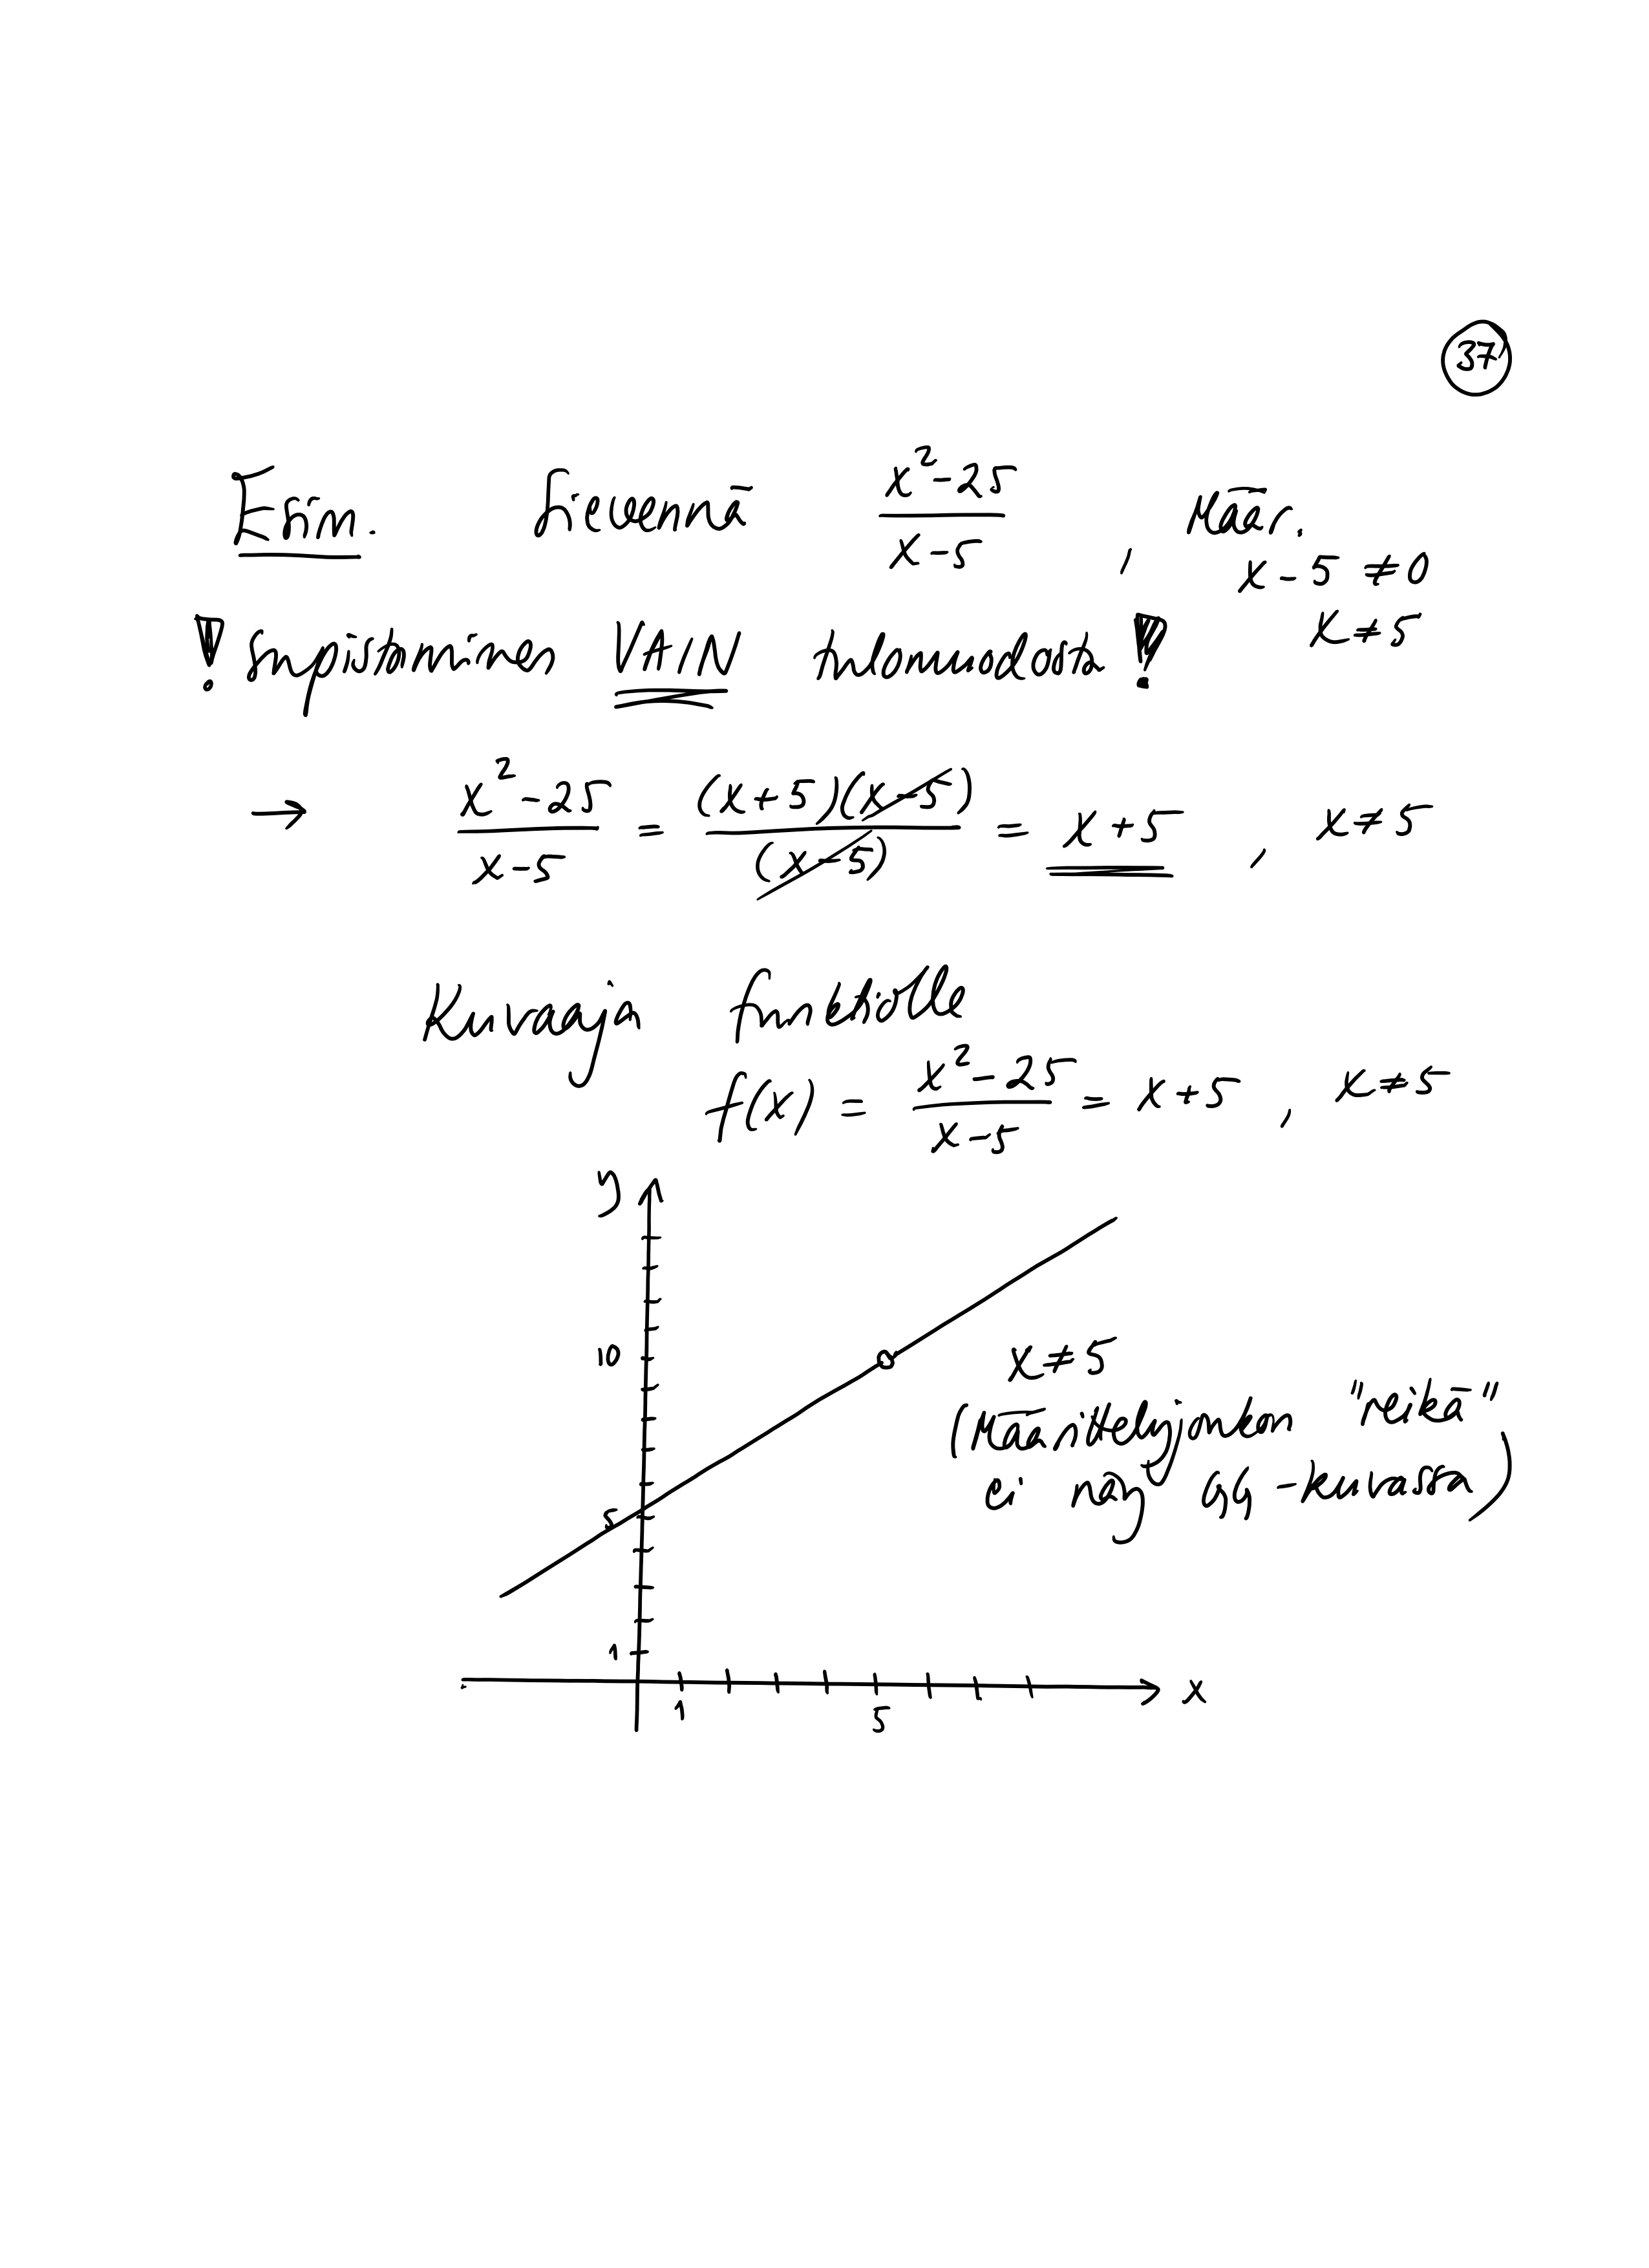 37
Esim. Sievennä (x² - 25)/(x - 5) , Määr.
x - 5 ≠ 0
x ≠ 5
! Supistaminen VAIN tulomuodosta !
→ (x² - 25)/(x - 5) = (x + 5)(x - 5)/(x - 5) = x + 5 , x ≠ 5
Kuvaaja funktiolle
f(x) = (x² - 25)/(x - 5) = x + 5 , x ≠ 5
y
10
x ≠ 5
(Määrittelyjoukon "reikä"
ei näy -kuvassa)
5
1
x
1 5